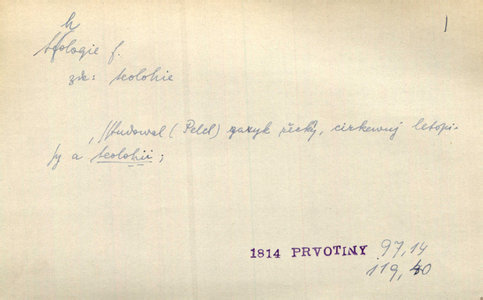 h
teologie f.
zde: teolohie
„Studowal (Pelcl) gazyk řecký, cirkewnj letopi-
sy a teolohii;
1814 PRVOTINY 97,14
119, 40
1